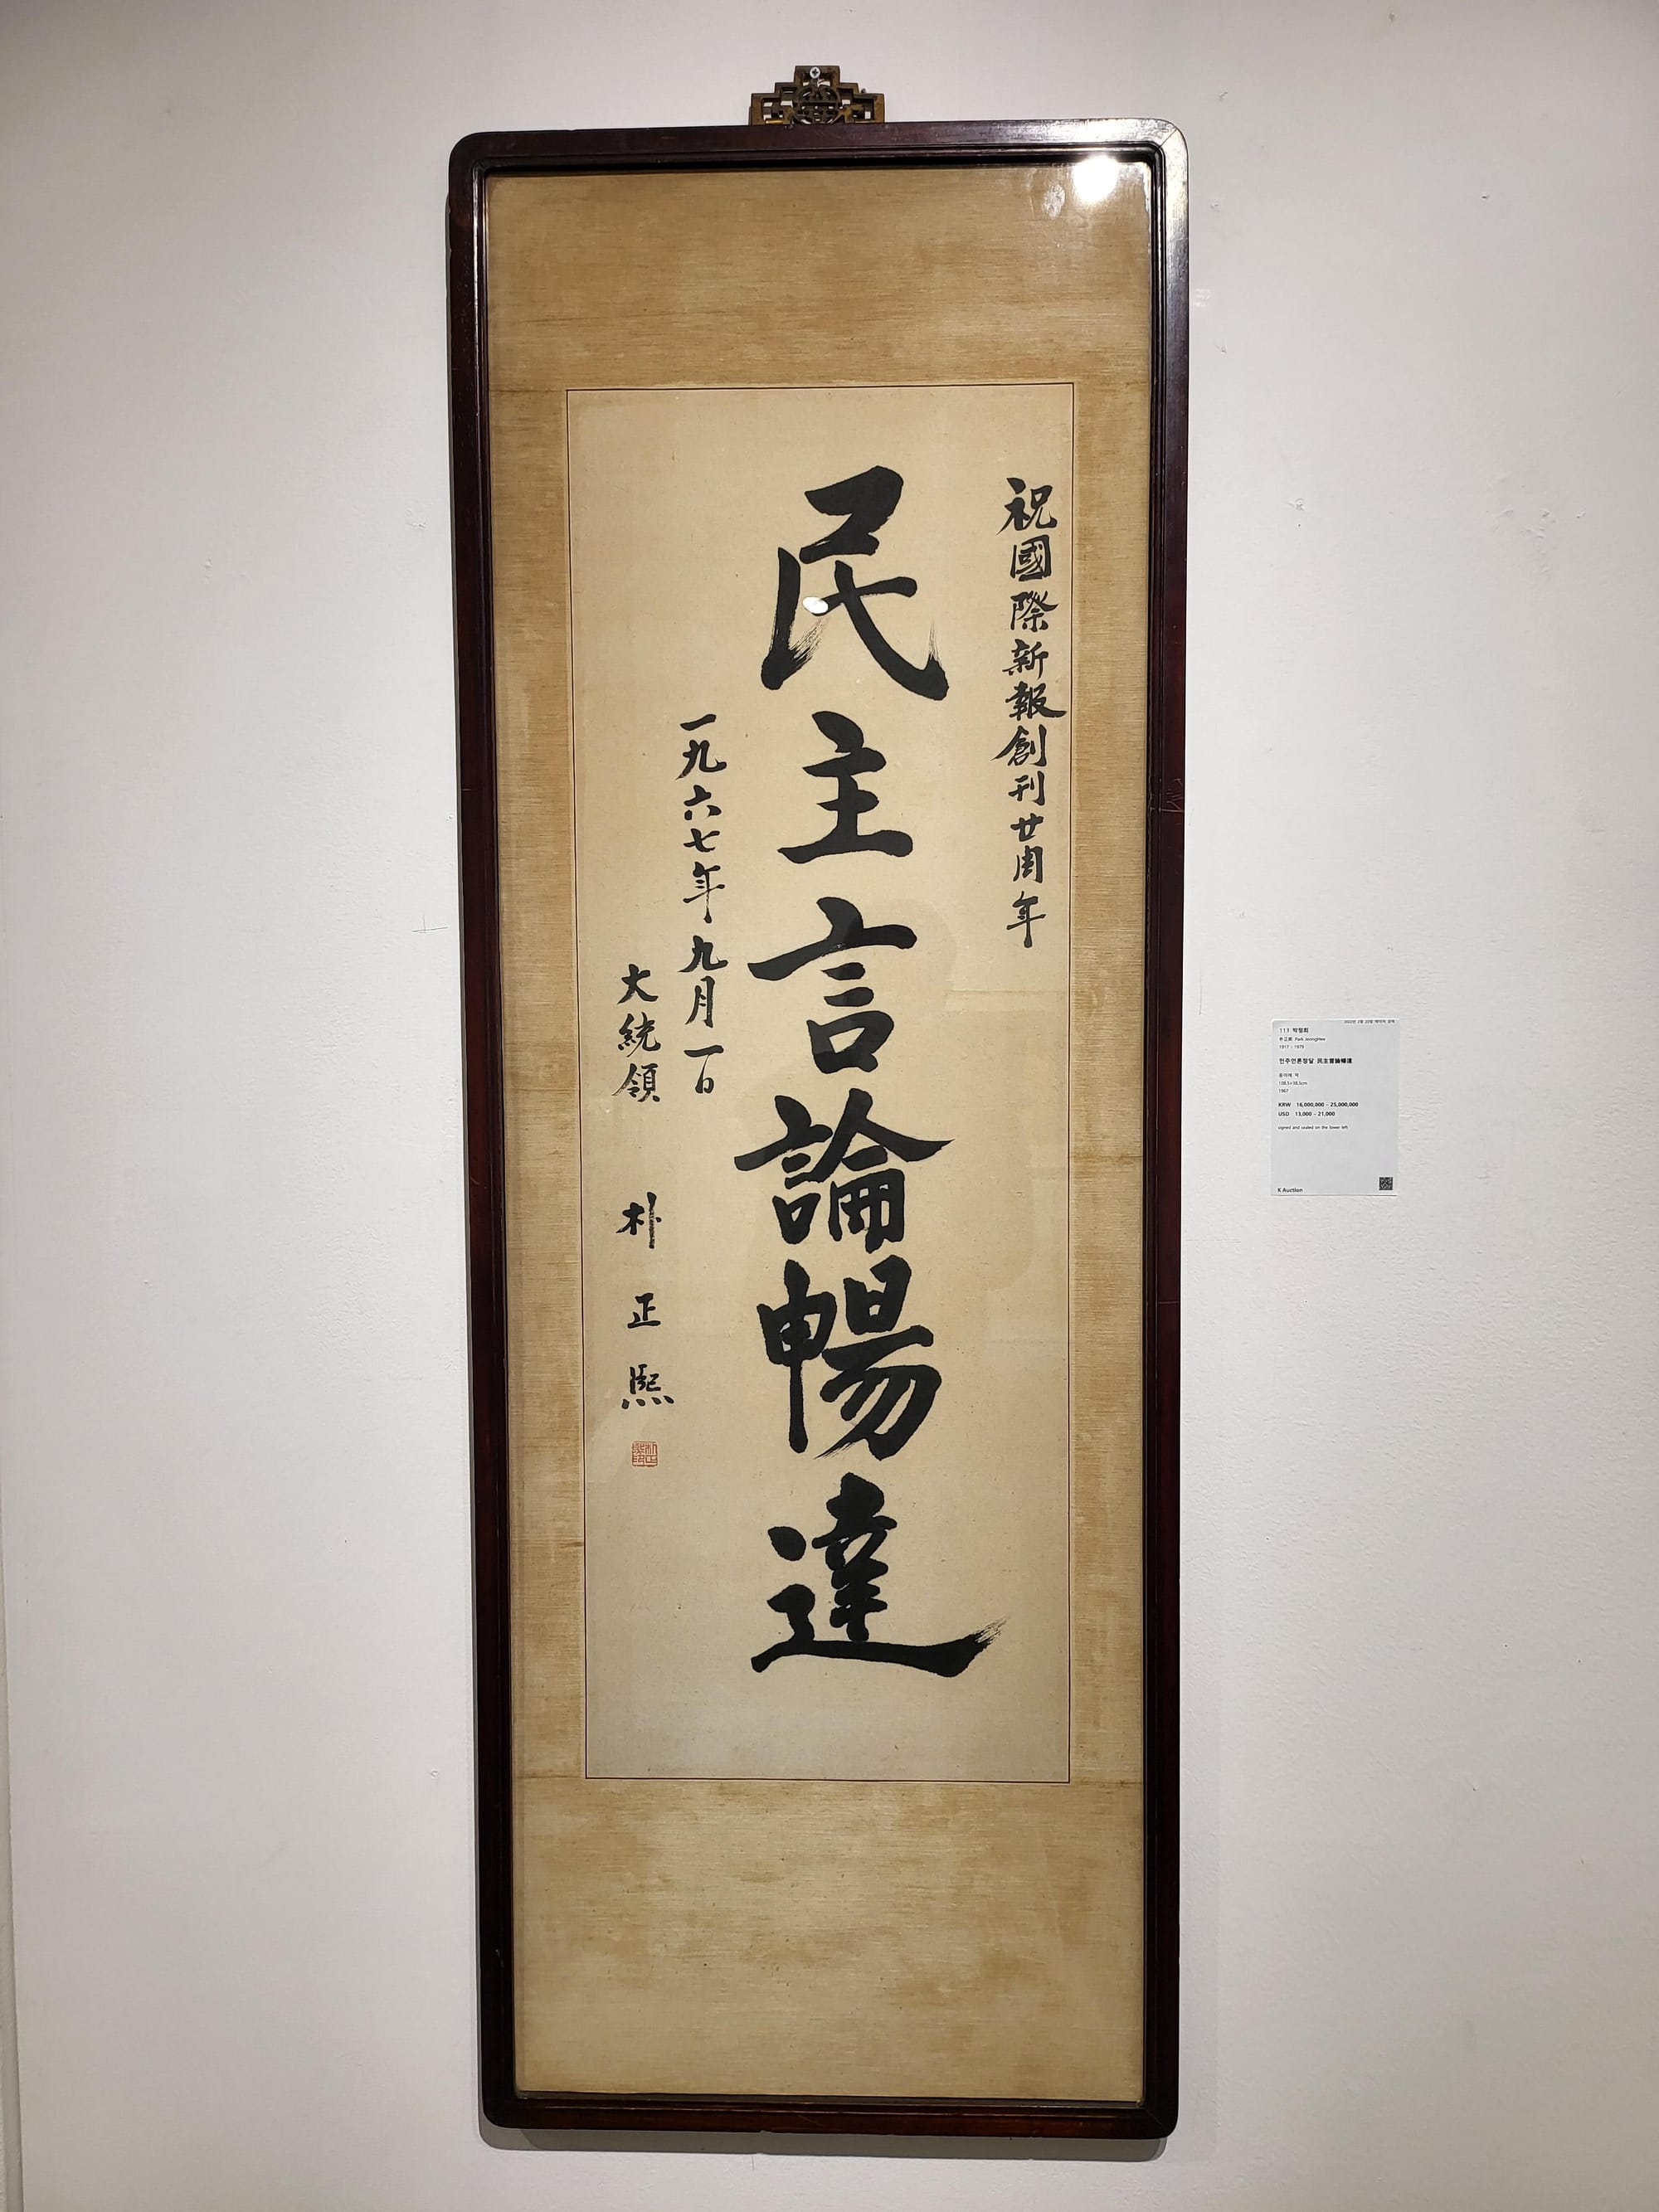 祝國際新報創刊廿周年
民主言論暢達
一九六七年九月一日
大統領 朴正熙
113 박정희
朴正熙 Park JeongHee
1917 - 1979
민주언론창달 民主言論暢達
종이에 먹
1967
KRW 16,000,000 - 25,000,000
USD 13,000 - 21,000
signed and sealed on the lower left
K Auction